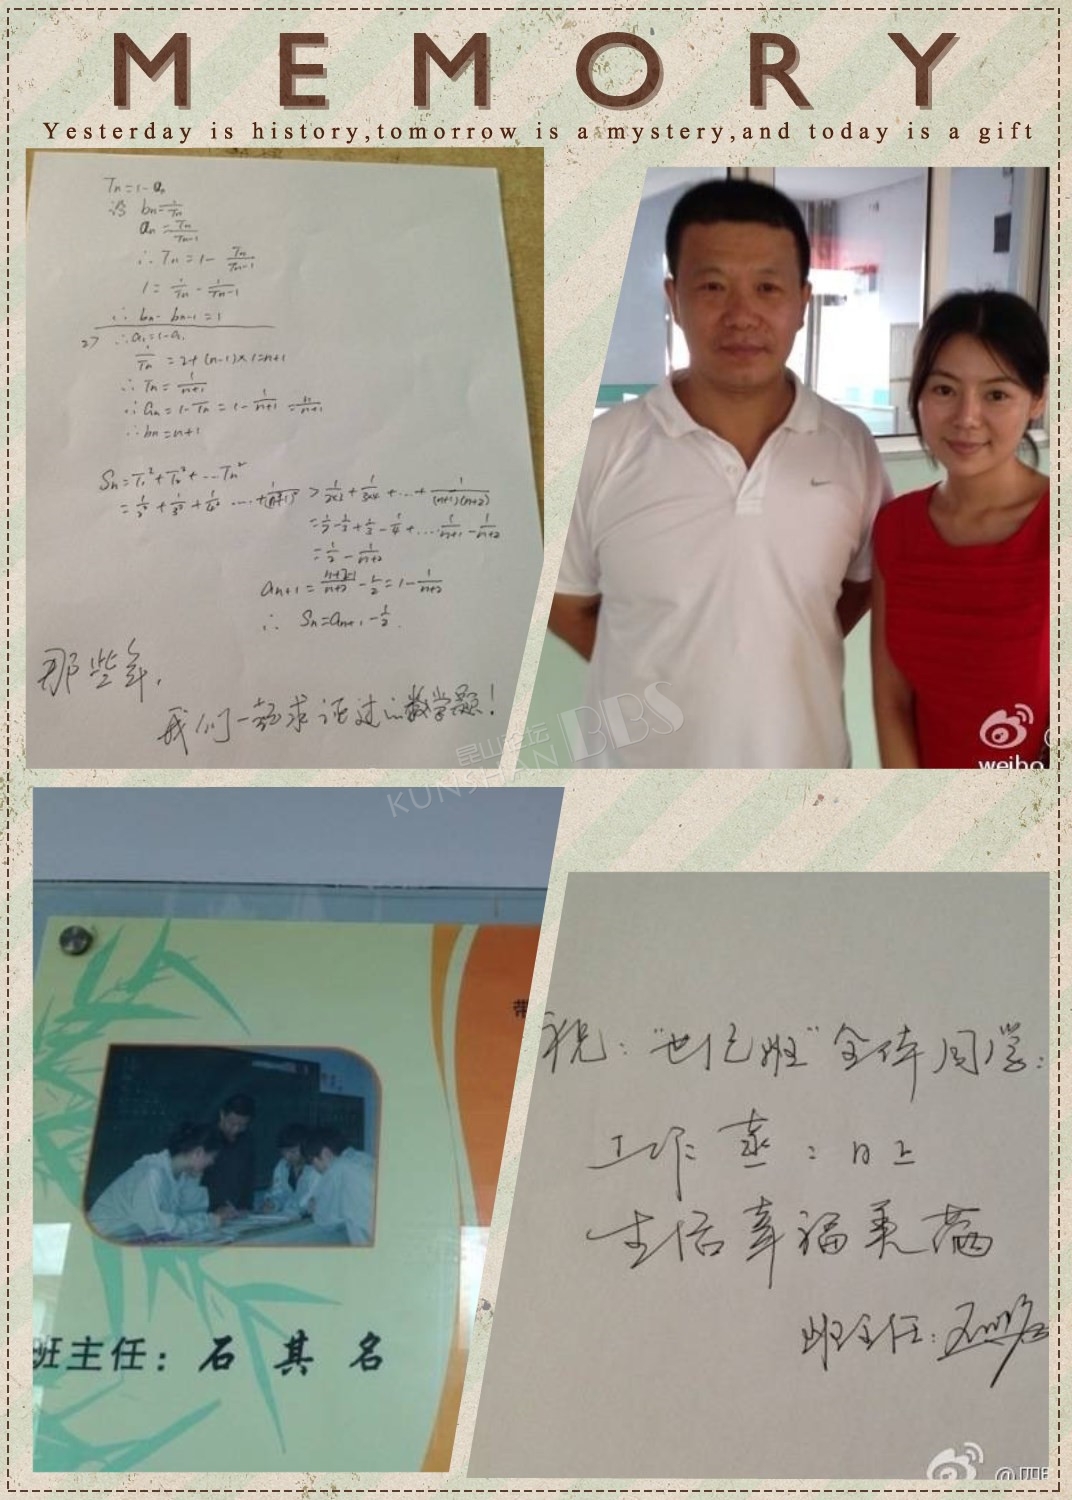 MEMORY
Yesterday is history,tomorrow is a mystery,and today is a gift
Tn=1-an
设 bn=1/Tn
an=Tn/Tn-1
∴Tn=1-Tn/Tn-1
1=1/Tn-1/Tn-1
∴bn-bn-1=1
2> ∴a1=1-a1
1/Tn=2+(n-1)×1=n+1
∴Tn=1/n+1
∴an=1-Tn=1-1/n+1=n/n+1
∴bn=n+1
Sn=T1²+T2²+…Tn²
=1/2²+1/3²+1/4²…+1/(n+1)²>1/2×3+1/3×4+…+1/(n+1)(n+2)
=1/2-1/3+1/3-1/4+…1/n+1-1/n+2
=1/2-1/n+2
an+1=n+2-1/n+2-1/2=1-1/n+2
∴ Sn=an+1-1/2.
那些年,
我们一起求证过的数学题!
昆山论坛
KUNSHAN BBS
weibo
带
班主任:石其名
祝:"世纪班"全体同学:
工作蒸:日上
生活幸福美满
班主任:石其名